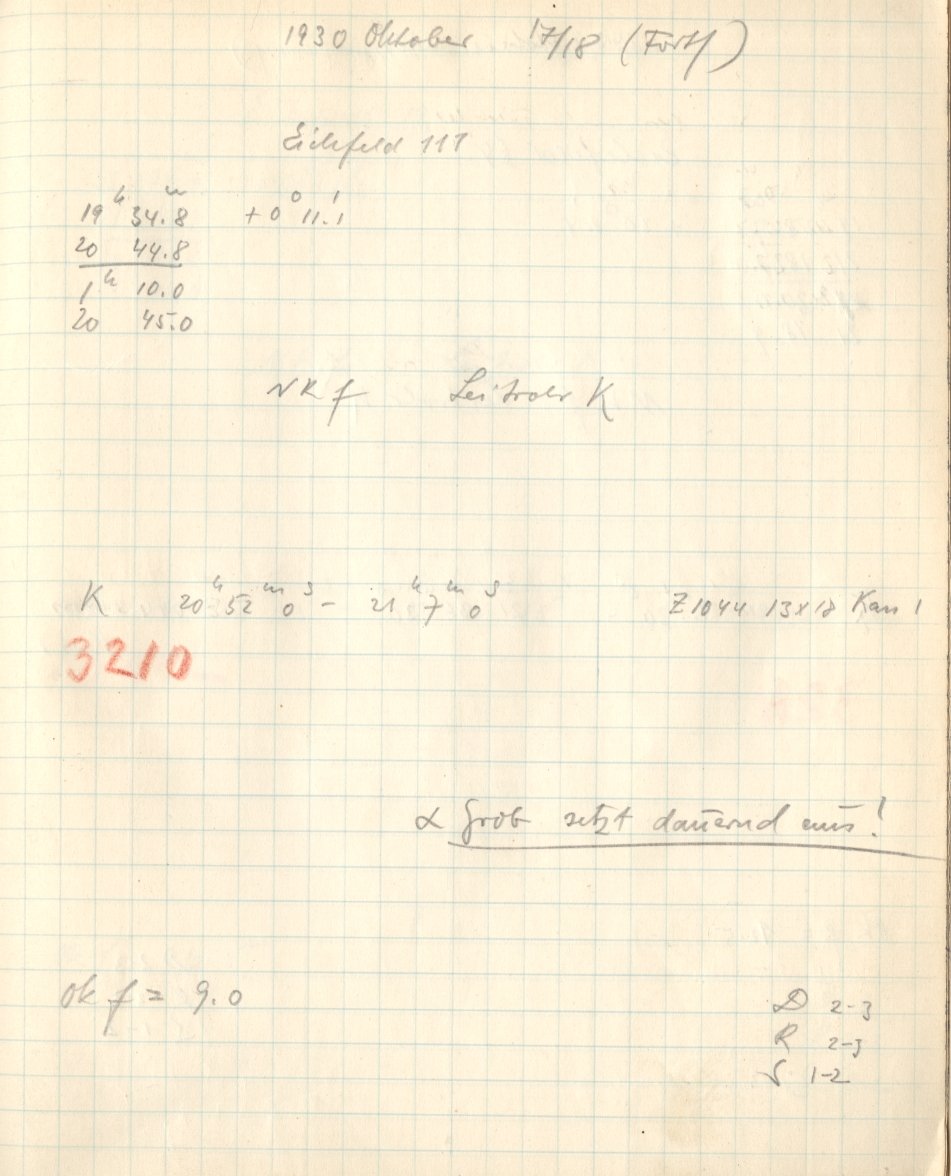 1930 Oktober 17/18 (Forts)
Eichfeld 111
19ʰ 34.8ᵐ +0° 11.1'
20 44.8
1ʰ 10.0
20 45.0
NRf Leitrohr K
K 20ʰ 52ᵐ 0ˢ – 21ʰ 7ᵐ 0ˢ Z1044 13x18 Kass 1
3210
α Grob setzt dauernd aus!
Ok f = 9.0
D 2-3
R 2-3
S 1-2